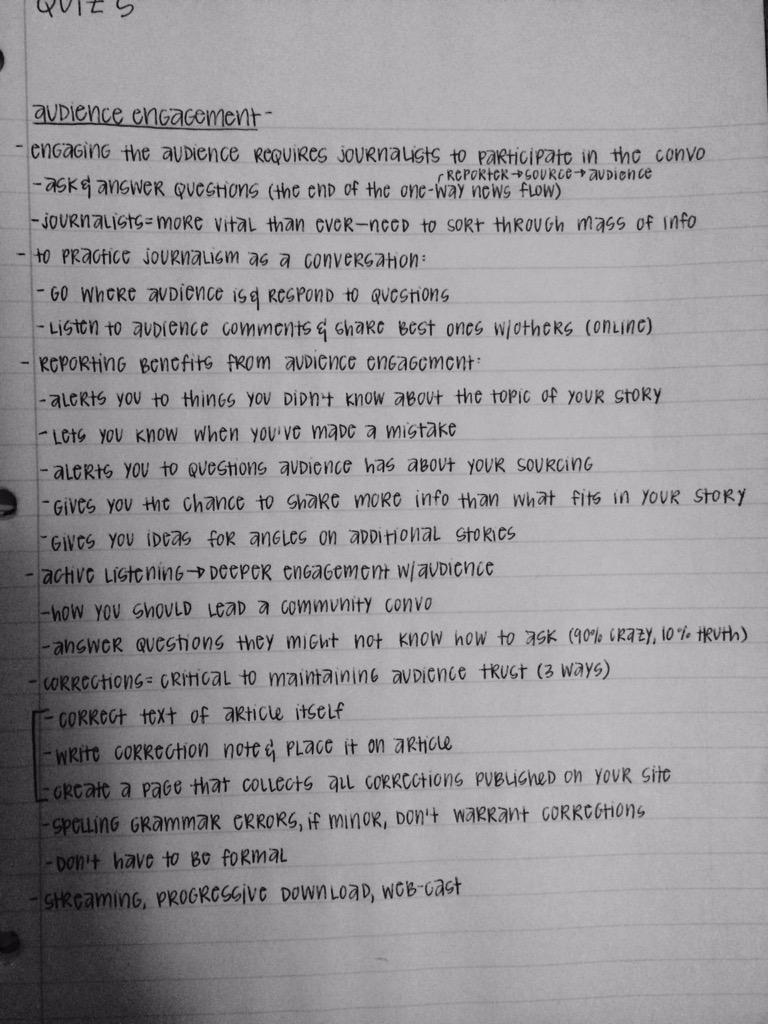 QUIZ 5
AUDIENCE ENGAGEMENT-
- ENGAGING THE AUDIENCE REQUIRES JOURNALISTS TO PARTICIPATE IN THE CONVO
REPORTER → SOURCE → AUDIENCE
- ASK & ANSWER QUESTIONS (THE END OF THE ONE-WAY NEWS FLOW)
- JOURNALISTS = MORE VITAL THAN EVER - NEED TO SORT THROUGH MASS OF INFO
- TO PRACTICE JOURNALISM AS A CONVERSATION:
- GO WHERE AUDIENCE IS & RESPOND TO QUESTIONS
- LISTEN TO AUDIENCE COMMENTS & SHARE BEST ONES W/OTHERS (ONLINE)
- REPORTING BENEFITS FROM AUDIENCE ENGAGEMENT:
- ALERTS YOU TO THINGS YOU DIDN'T KNOW ABOUT THE TOPIC OF YOUR STORY
- LETS YOU KNOW WHEN YOU'VE MADE A MISTAKE
- ALERTS YOU TO QUESTIONS AUDIENCE HAS ABOUT YOUR SOURCING
- GIVES YOU THE CHANCE TO SHARE MORE INFO THAN WHAT FITS IN YOUR STORY
- GIVES YOU IDEAS FOR ANGLES ON ADDITIONAL STORIES
- ACTIVE LISTENING → DEEPER ENGAGEMENT W/AUDIENCE
- HOW YOU SHOULD LEAD A COMMUNITY CONVO
- ANSWER QUESTIONS THEY MIGHT NOT KNOW HOW TO ASK (90% CRAZY, 10% TRUTH)
- CORRECTIONS = CRITICAL TO MAINTAINING AUDIENCE TRUST (3 WAYS)
- CORRECT TEXT OF ARTICLE ITSELF
- WRITE CORRECTION NOTE & PLACE IT ON ARTICLE
- CREATE A PAGE THAT COLLECTS ALL CORRECTIONS PUBLISHED ON YOUR SITE
- SPELLING GRAMMAR ERRORS, IF MINOR, DON'T WARRANT CORRECTIONS
- DON'T HAVE TO BE FORMAL
- STREAMING, PROGRESSIVE DOWNLOAD, WEB-CAST